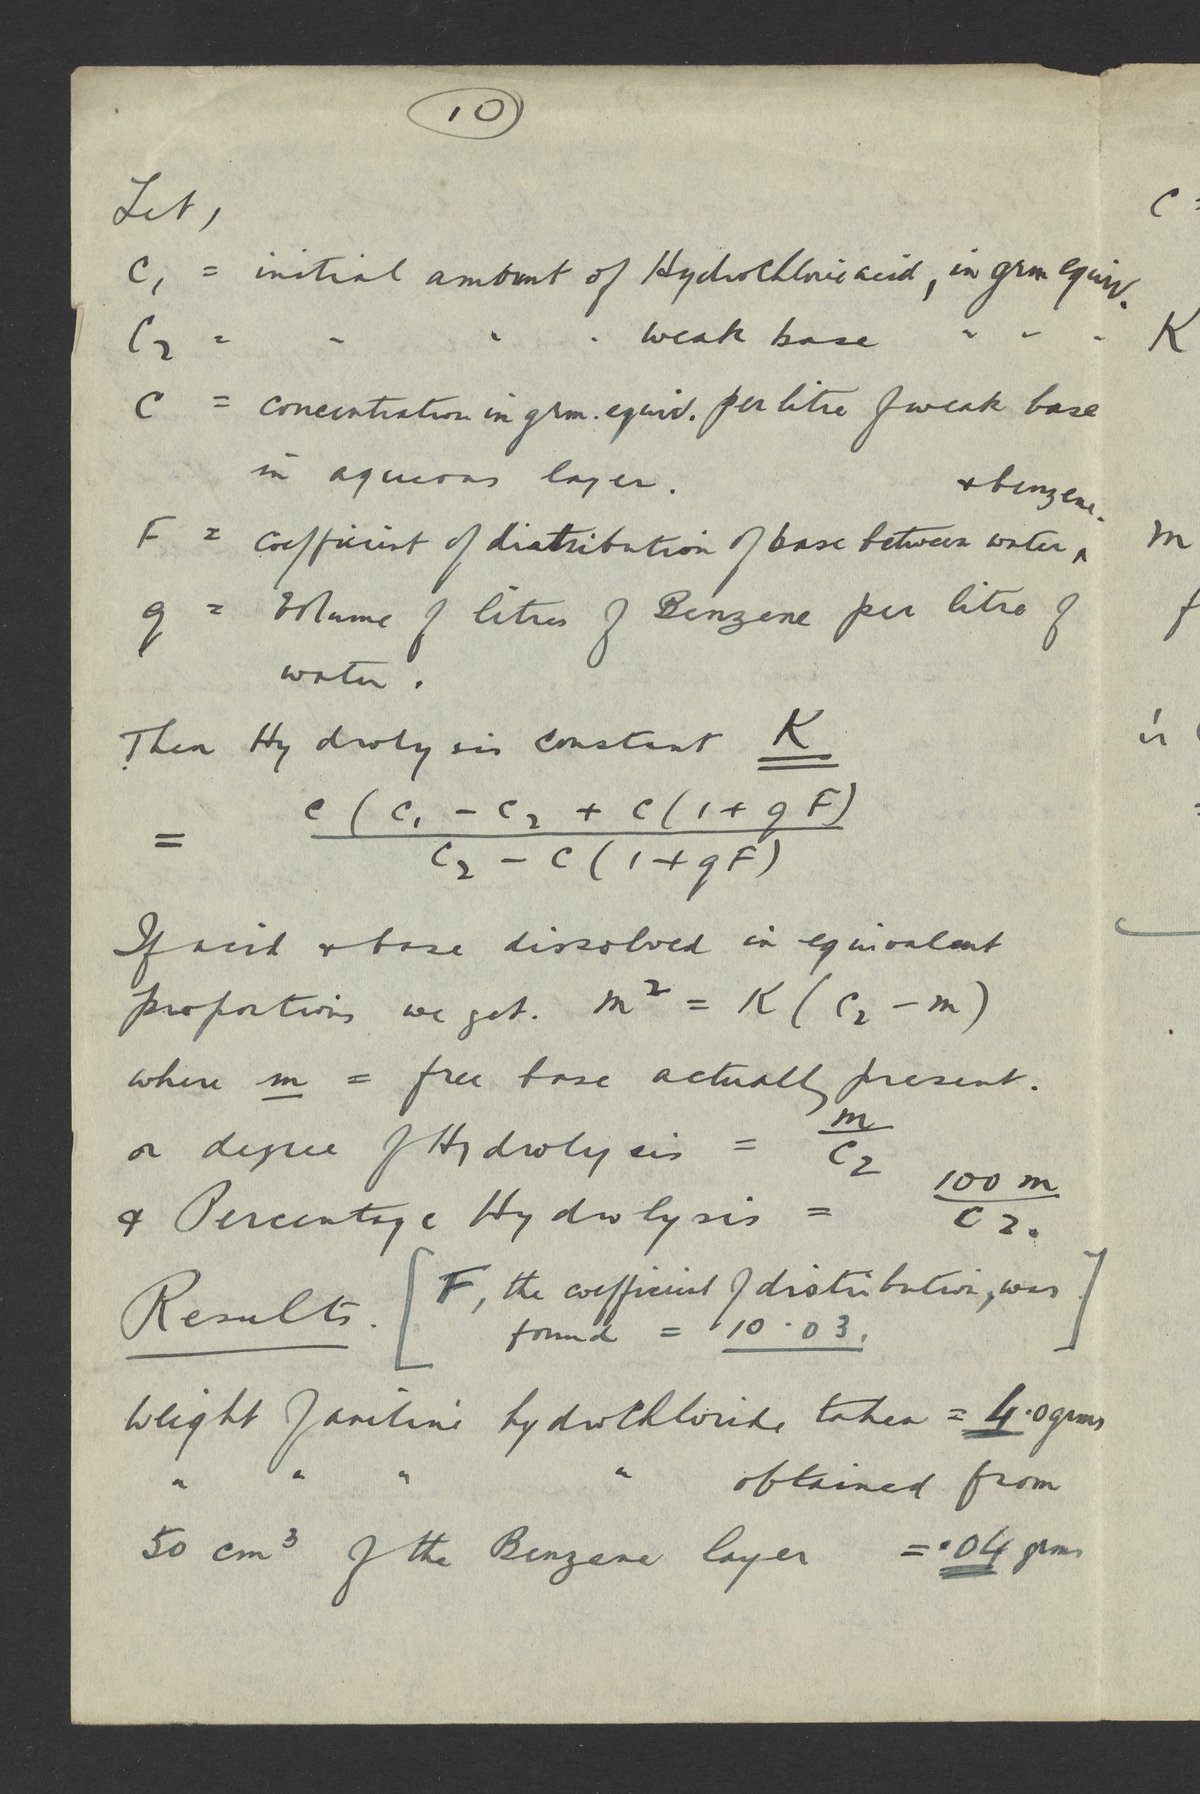 10
Let,
C₁ = initial amount of Hydrochloric acid, in grm equiv.
C₂ = " " " weak base " " "
C = concentration in grm. equiv. per litre of weak base
in aqueous layer.
F = coefficient of distribution of base between water ^ & benzene.
q = Volume of litres of Benzene per litre of
water.
Then Hydrolysis constant K
= C ( C₁ - C₂ + C ( 1 + q F ) / C₂ - C ( 1 + q F )
If acid & base dissolved in equivalent
proportions we get. m² = K ( C₂ - m )
where m = free base actually present.
or degree of Hydrolysis = m / C₂
& Percentage Hydrolysis = 100 m / C₂.
Results. [ F, the coefficient of distribution, was
found = 10·03. ]
Weight of aniline hydrochloride taken = 4·0 grms
" " " " obtained from
50 cm³ of the Benzene layer = ·04 grms
C =
K
m
f
is